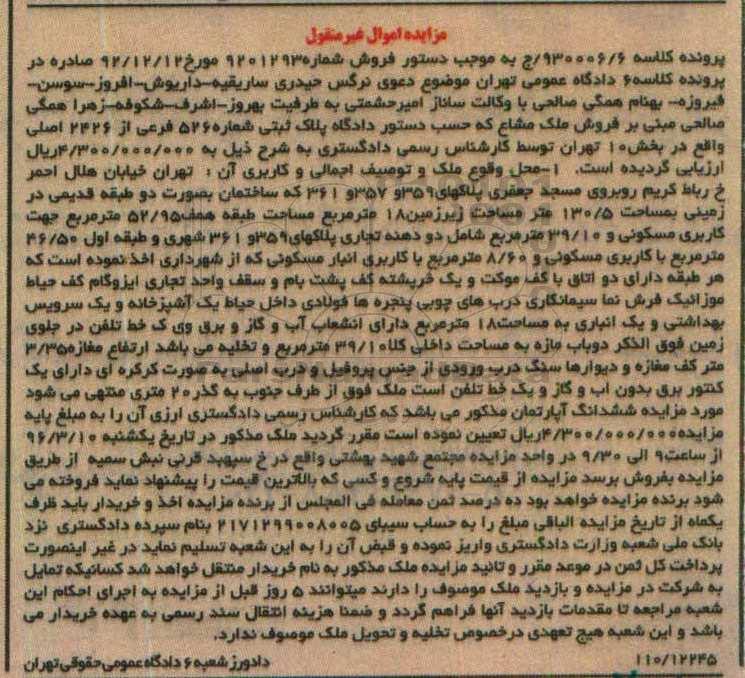 مزایده اموال غیرمنقول
پرونده کلاسه ۹۳۰۰۰۶/۶/ج به موجب دستور فروش شماره۹۲۰۱۲۹۳ مورخ۹۲/۱۲/۱۲ صادره در
پرونده کلاسه۶ دادگاه عمومی تهران موضوع دعوی نرگس حیدری ساریقیه-داریوش-افروز-سوسن-
فیروزه- بهنام همگی صالحی با وکالت ساناز امیرحشمتی به طرفیت بهروز-اشرف-شکوفه-زهرا همگی
صالحی مبنی بر فروش ملک مشاع که حسب دستور دادگاه پلاک ثبتی شماره۵۲۶ فرعی از ۲۴۲۶ اصلی
واقع در بخش۱۰ تهران توسط کارشناس رسمی دادگستری به شرح ذیل به ۴/۳۰۰/۰۰۰/۰۰۰ریال
ارزیابی گردیده است. ۱-محل وقوع ملک و توصیف اجمالی و کاربری آن : تهران خیابان هلال احمر
خ رباط کریم روبروی مسجد جعفری پلاکهای۳۵۹و ۳۵۷و ۳۶۱ که ساختمان بصورت دو طبقه قدیمی در
زمینی بمساحت ۱۳۰/۵ متر مساحت زیرزمین۱۸ مترمربع مساحت طبقه همف۵۲/۹۵ مترمربع جهت
کاربری مسکونی و ۳۹/۱۰ مترمربع شامل دو دهنه تجاری پلاکهای۳۵۹و ۳۶۱ شهری و طبقه اول ۴۶/۵۰
مترمربع با کاربری مسکونی و ۸/۶۰ مترمربع با کاربری انبار مسکونی که از شهرداری اخذ نموده است که
هر طبقه دارای دو اتاق با کف موکت و یک خرپشته کف پشت بام و سقف واحد تجاری ایزوگام کف حیاط
موزائیک فرش نما سیمانکاری درب های چوبی پنجره ها فولادی داخل حیاط یک آشپزخانه و یک سرویس
بهداشتی و یک انباری به مساحت۱۸ مترمربع دارای انشعاب آب و گاز و برق وی ک خط تلفن در جلوی
زمین فوق الذکر دوباب مازه به مساحت داخلی کلا۳۹/۱۰ مترمربع و تخلیه می باشد ارتفاع مغازه۳/۳۵
متر کف مغازه و دیوارها سنگ درب ورودی از جنس پروفیل و درب اصلی به صورت کرکره ای دارای یک
کنتور برق بدون اب و گاز و یک خط تلفن است ملک فوق از طرف جنوب به گذر۲۰ متری منتهی می شود
مورد مزایده ششدانگ آپارتمان مذکور می باشد که کارشناس رسمی دادگستری ارزی آن را به مبلغ پایه
مزایده۴/۳۰۰/۰۰۰/۰۰۰ریال تعیین نموده است مقرر گردید ملک مذکور در تاریخ یکشنبه ۹۶/۳/۱۰
از ساعت۹ الی ۹/۳۰ در واحد مزایده مجتمع شهید بهشتی واقع در خ سپهبد قرنی نبش سمیه از طریق
مزایده بفروش برسد مزایده از قیمت پایه شروع و کسی که بالاترین قیمت را پیشنهاد نماید فروخته می
شود برنده مزایده خواهد بود ده درصد ثمن معامله فی المجلس از برنده مزایده اخذ و خریدار باید ظرف
یکماه از تاریخ مزایده الباقی مبلغ را به حساب سیبای ۲۱۷۱۲۹۹۰۰۸۰۰۵ بنام سپرده دادگستری نزد
بانک ملی شعبه وزارت دادگستری واریز نموده و قبض آن را به این شعبه تسلیم نماید در غیر اینصورت
پرداخت کل ثمن در موعد مقرر و تائید مزایده ملک مذکور به نام خریدار منتقل خواهد شد کسانیکه تمایل
به شرکت در مزایده و بازدید ملک موصوف را دارند میتوانند ۵ روز قبل از مزایده به اجرای احکام این
شعبه مراجعه تا مقدمات بازدید آنها فراهم گردد و ضمنا هزینه انتقال سند رسمی به عهده خریدار می
باشد و این شعبه هیچ تعهدی درخصوص تخلیه و تحویل ملک موصوف ندارد.
۱۱۰/۱۲۲۴۵ دادورز شعبه ۶ دادگاه عمومی حقوقی تهران